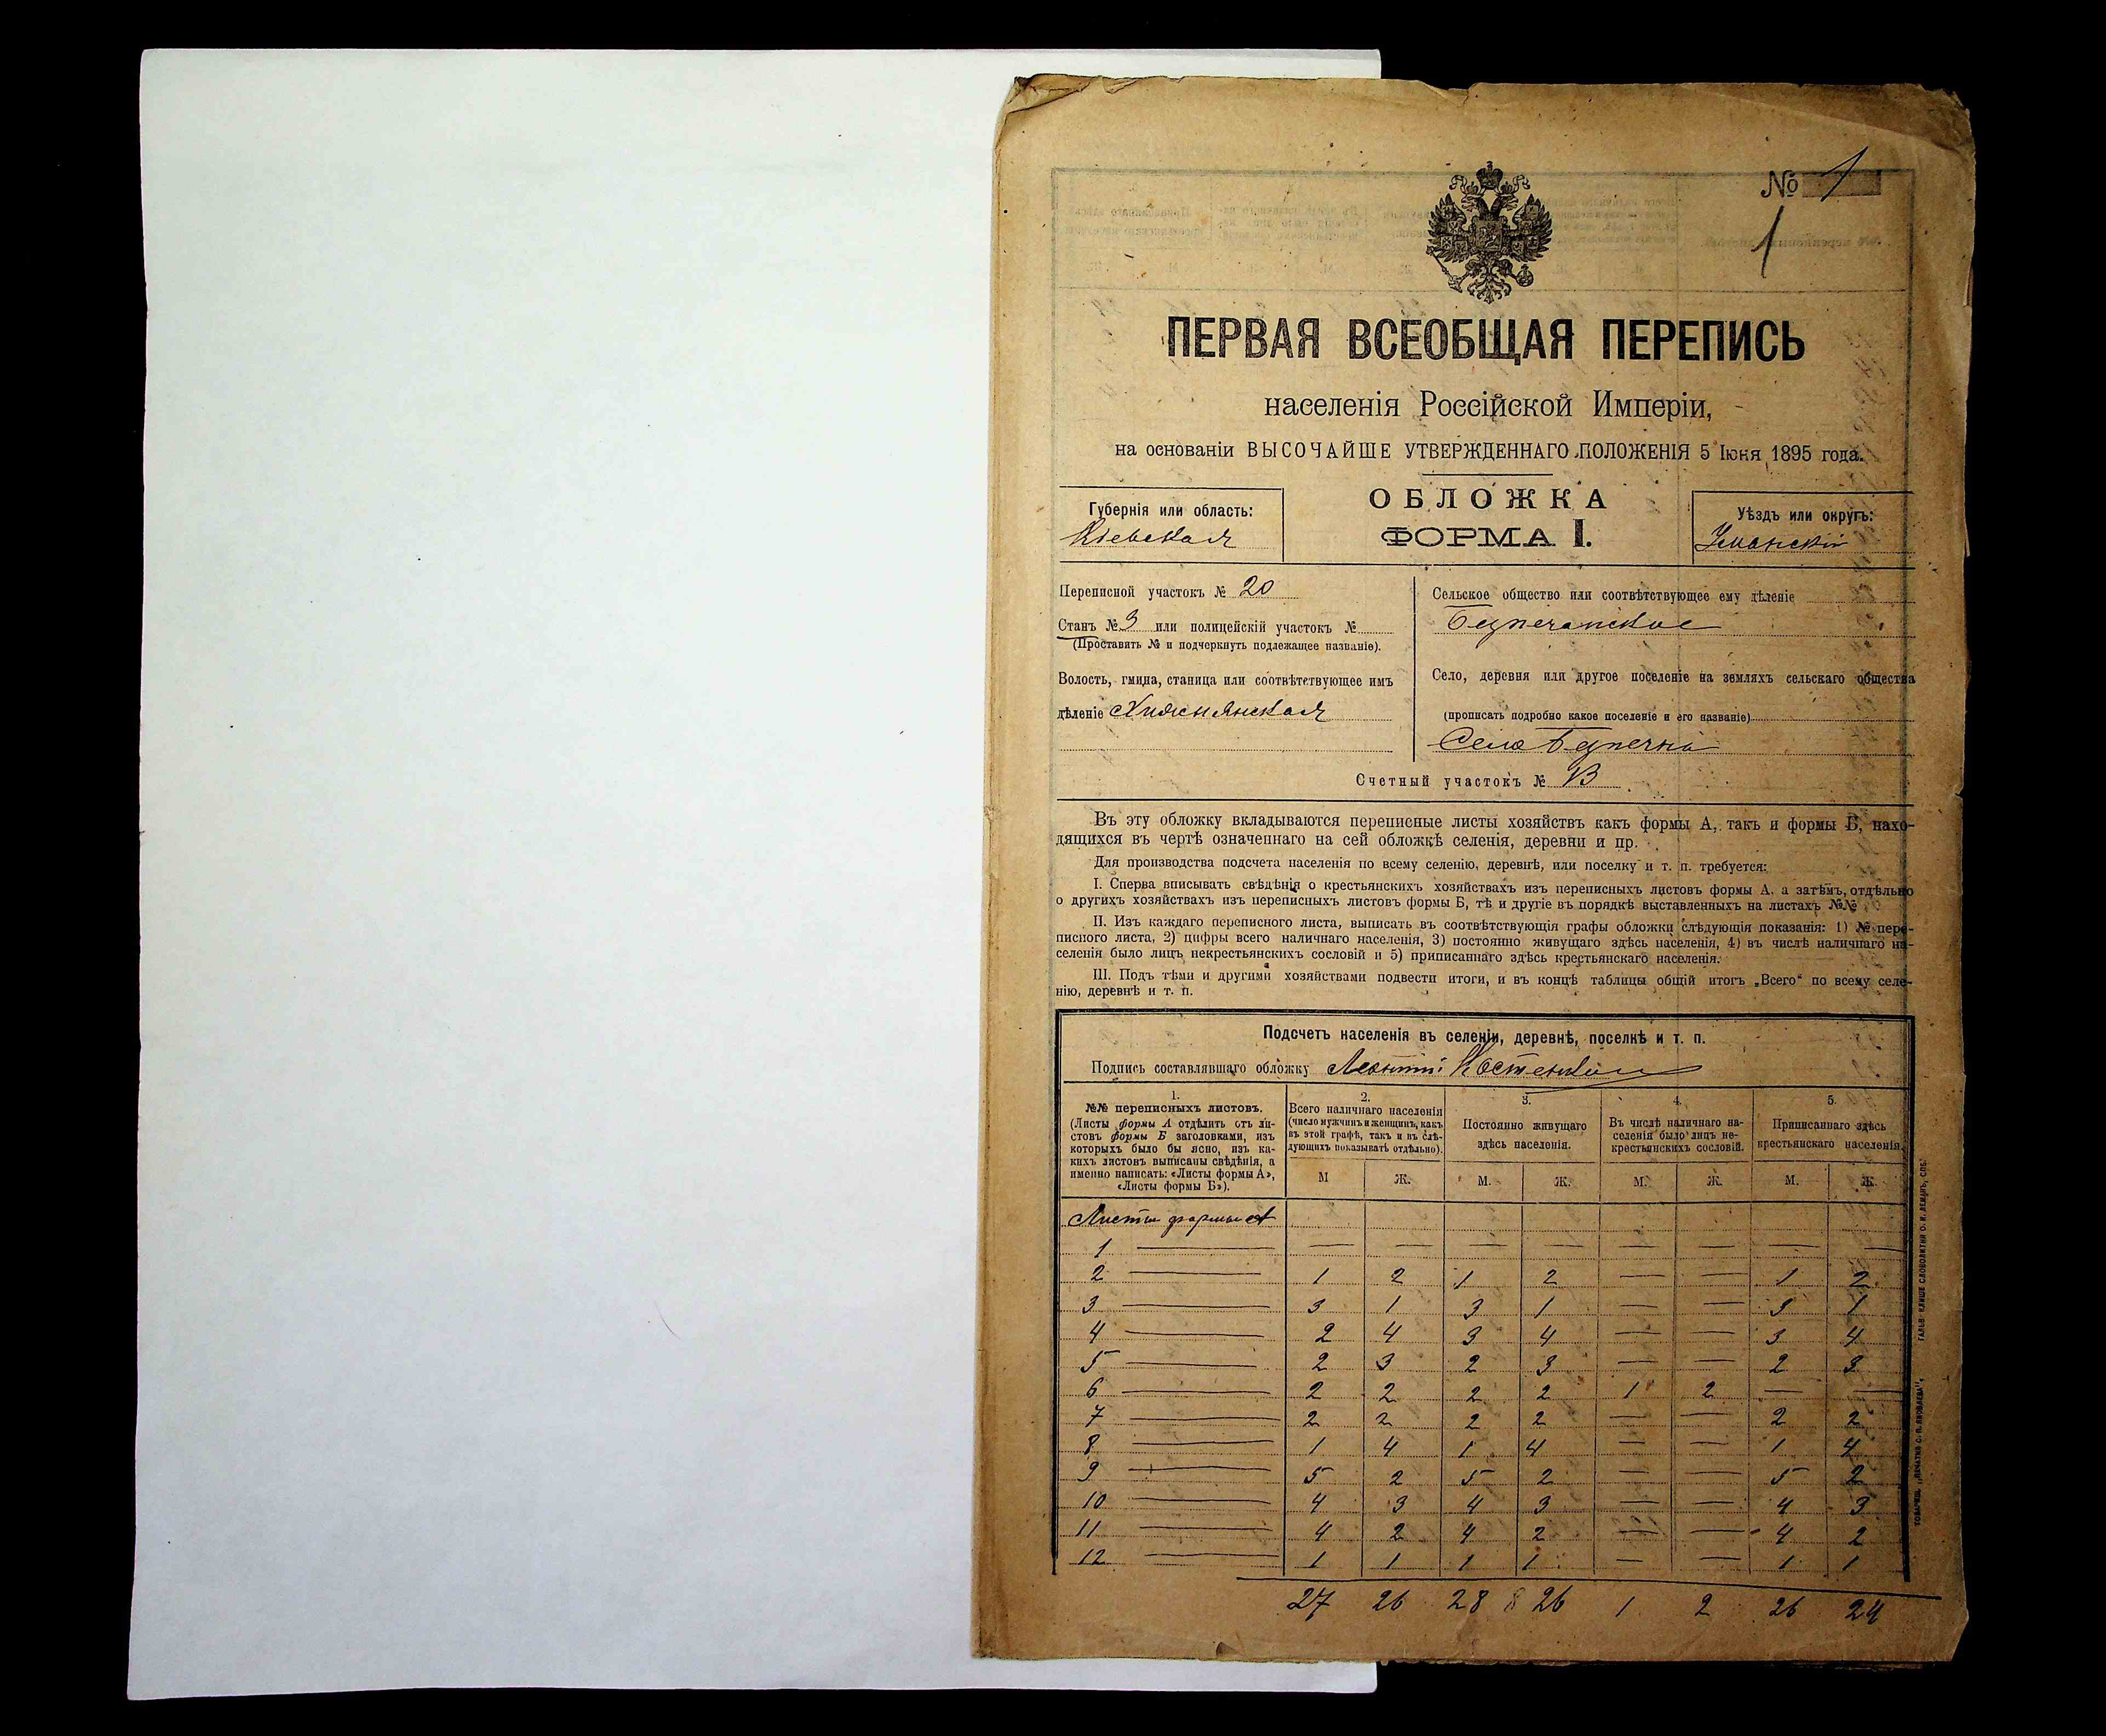 № 1
1
ПЕРВАЯ ВСЕОБЩАЯ ПЕРЕПИСЬ
населенія Россійской Имперіи,
на основаніи ВЫСОЧАЙШЕ УТВЕРЖДЕННАГО ПОЛОЖЕНІЯ 5 Іюня 1895 года.
ОБЛОЖКА
ФОРМА I.
Губернія или область:
Кіевская
Уѣздъ или округъ:
Уманскій
Переписной участокъ № 20
Станъ № 3 или полицейскій участокъ №
(Проставить № и подчеркнуть подлежащее названіе).
Волость, гмина, станица или соотвѣтствующее имъ
дѣленіе Хижнянская
Сельское общество или соотвѣтствующее ему дѣленіе
Беспечанское
Село, деревня или другое поселеніе на земляхъ сельскаго общества
(прописать подробно какое поселеніе и его названіе)
Село
Счетный участокъ № В
Въ эту обложку вкладываются переписные листы хозяйствъ какъ формы А, такъ и формы Б, нахо-
дящихся въ чертѣ означеннаго на сей обложкѣ селенія, деревни и пр.
Для производства подсчета населенія по всему селенію, деревнѣ, или поселку и т. п. требуется:
I. Сперва вписывать свѣдѣнія о крестьянскихъ хозяйствахъ изъ переписныхъ листовъ формы А, а затѣмъ, отдѣльно
о другихъ хозяйствахъ изъ переписныхъ листовъ формы Б, тѣ и другіе въ порядкѣ выставленныхъ на листахъ №№
II. Изъ каждаго переписного листа, выписать въ соотвѣтствующія графы обложки слѣдующія показанія: 1) № пере-
писного листа, 2) цифры всего наличнаго населенія, 3) постоянно живущаго здѣсь населенія, 4) въ числѣ наличнаго на-
селенія было лицъ некрестьянскихъ сословій и 5) приписаннаго здѣсь крестьянскаго населенія.
III. Подъ тѣми и другими хозяйствами подвести итоги, и въ концѣ таблицы общій итогъ „Всего“ по всему селе-
нію, деревнѣ и т. п.
Подсчетъ населенія въ селеніи, деревнѣ, поселкѣ и т. п.
Подпись составлявшаго обложку Леонтій
1.
№№ переписныхъ листовъ.
(Листы формы А отдѣлить отъ ли-
стовъ формы Б заголовками, изъ
которыхъ было бы ясно, изъ ка-
кихъ листовъ выписаны свѣдѣнія, а
именно написать: «Листы формы А»,
«Листы формы Б»).
2.
Всего наличнаго населенія
(число мужчинъ и женщинъ, какъ
въ этой графѣ, такъ и въ слѣ-
дующихъ показывать отдѣльно).
3.
Постоянно живущаго
здѣсь населенія.
4.
Въ числѣ наличнаго на-
селенія было лицъ не-
крестьянскихъ сословій.
5.
Приписаннаго здѣсь
крестьянскаго населенія.
М Ж. М. Ж. М. Ж. М. Ж.
Листы формы А
1 — — — — — — — — —
2 — 1 2 1 2 — — 1 2
3 — 3 1 3 1 — — 3 1
4 — 2 4 3 4 — — 3 4
5 — 2 3 2 3 — — 2 3
6 — 2 2 2 2 1 2 — —
7 — 2 2 2 2 — — 2 2
8 — 1 4 1 4 — — 1 4
9 — 5 2 5 2 — — 5 2
10 — 4 3 4 3 — — 4 3
11 — 4 2 4 2 — — 4 2
12 — 1 1 1 1 — — 1 1
27 26 28 8 26 1 2 26 24